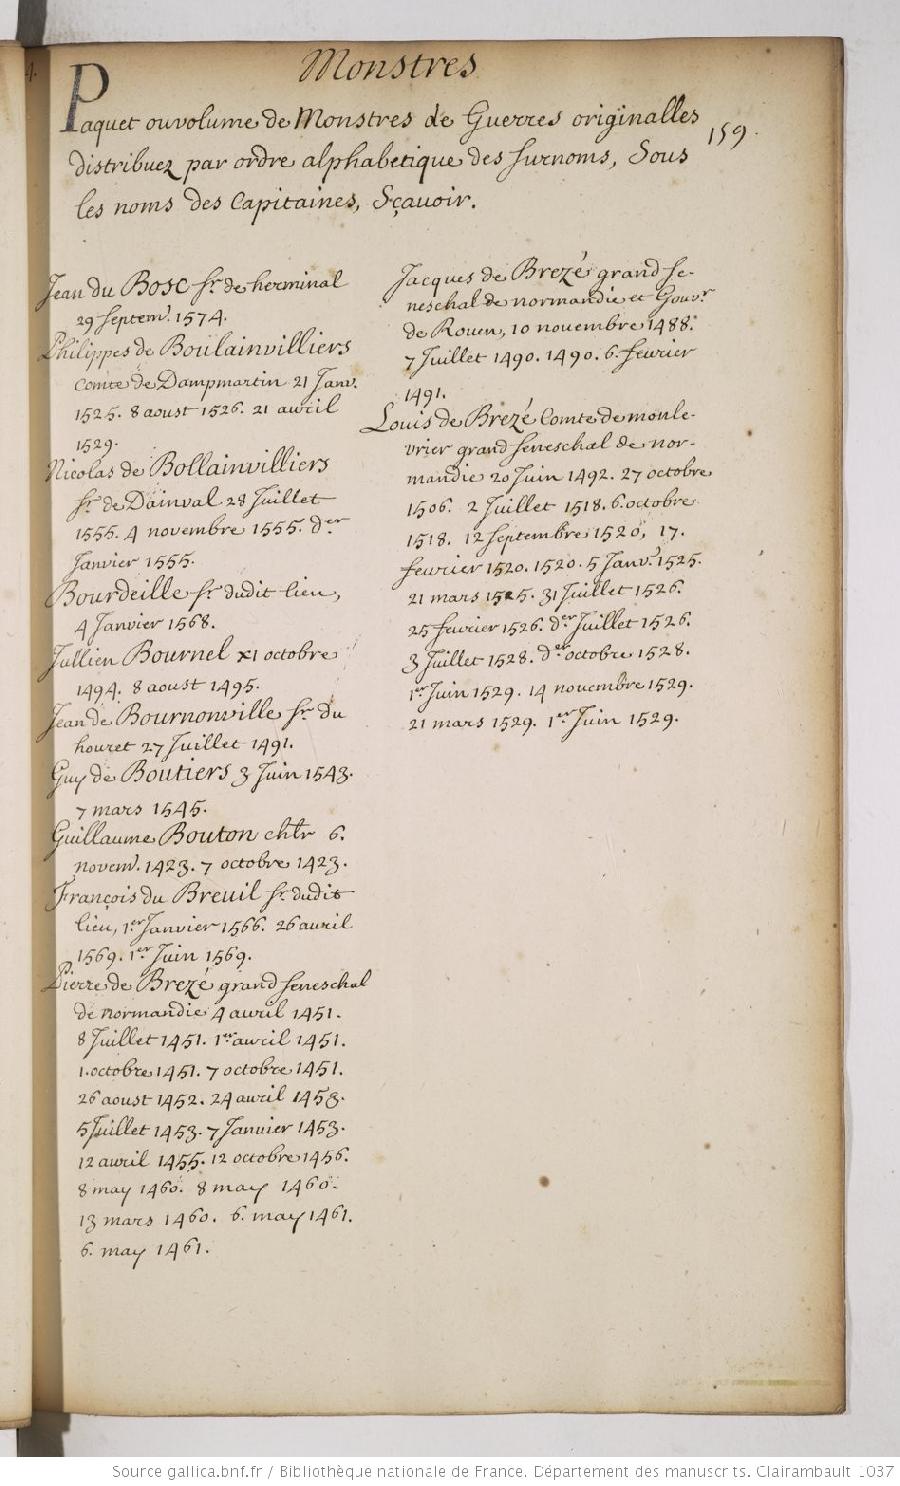 Monstres
159.
Paquet ou volume de Monstres de Guerres originalles
distribuez par ordre alphabetique des surnoms, Sous
les noms des Capitaines, Sçavoir.
Jean du Bosc sr. de herminal
29 septemr. 1574.
Philippes de Boulainvilliers
comte de Dampmartin 21 Janv.
1525. 8 aoust 1526. 21 avril
1529.
Nicolas de Bollainvilliers
sr. de Dainval 28 Juillet
1555. 4 novembre 1555. der
Janvier 1555.
Bourdeille sr. dudit lieu,
4 Janvier 1568.
Jullien Bournel xi octobre
1494. 8 aoust 1495.
Jean de Bournonville sr. du
houret 27 Juillet 1491.
Guy de Boutiers 3 Juin 1543.
7 mars 1545.
Guillaume Bouton chlr 6.
novem. 1423. 7 octobre 1423.
François du Breuil sr. dudit
lieu, 1er Janvier 1566. 26 avril
1569. 1er Juin 1569.
Pierre de Brezé grand seneschal
de normandie 4 avril 1451.
8 Juillet 1451. 1er avril 1451.
1. octobre 1451. 7 octobre 1451.
26 aoust 1452. 24 avril 1453.
5 Juillet 1453. 7 Janvier 1453.
12 avril 1455. 12 octobre 1456.
8 may 1460. 8 may 1460.
13 mars 1460. 6. may 1461.
6. may 1461.
Jacques de Brezé grand se-
neschal de normandie et Gouvr
de Rouen, 10 novembre 1488.
7 Juillet 1490. 1490. 6. fevrier
1491.
Louis de Brezé Comte de monle-
vrier grand seneschal de nor-
mandie 20 Juin 1492. 27 octobre
1506. 2 Juillet 1518. 6. octobre
1518. 12 septembre 1520, 17.
fevrier 1520. 1520. 5 Janvr. 1525.
21 mars 1525. 31 Juillet 1526.
25 fevrier 1526. der Juillet 1526.
3 Juillet 1528. der octobre 1528.
1er Juin 1529. 14 novembre 1529.
21 mars 1529. 1er Juin 1529.
Source gallica.bnf.fr / Bibliothèque nationale de France. Département des manuscrits. Clairambault 1037